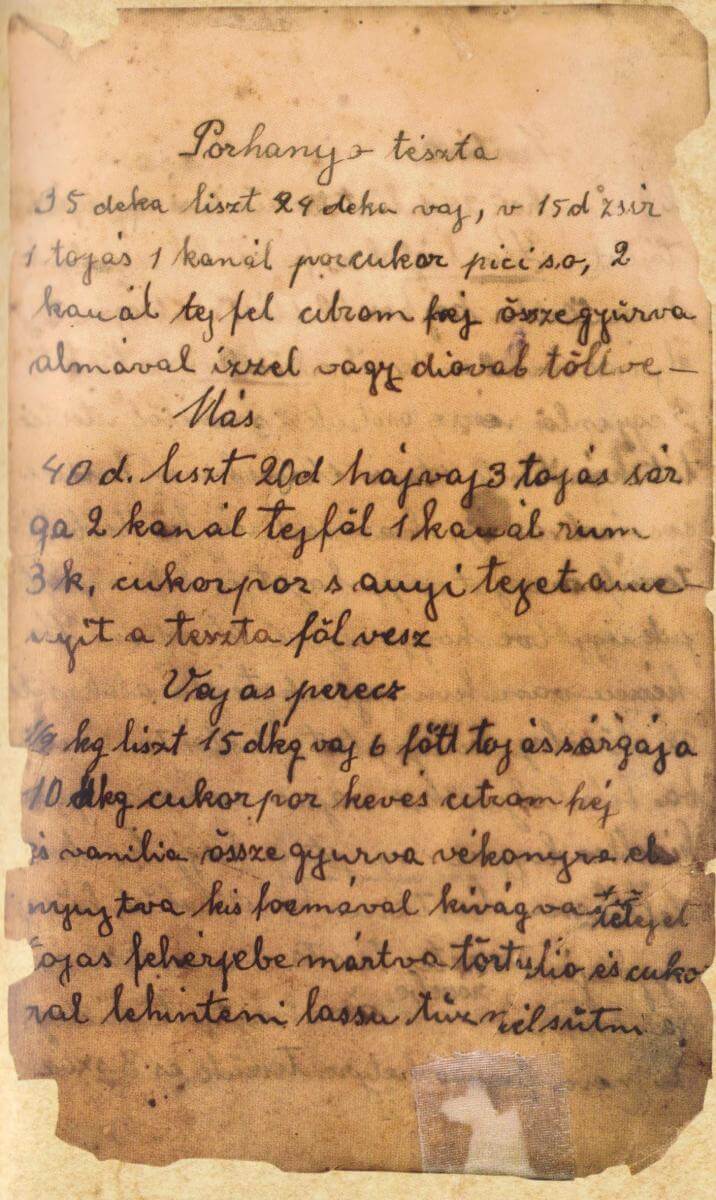 Porhanyo tészta
35 deka liszt 24 deka vaj, v 15d zsir
1 tojás 1 kanál porcukor pici so, 2
kanál tejfel citrom héj összegyúrva
almával ízzel vagy dioval töltve –
Más
40 d. liszt 20d hájvaj 3 tojás sár
ga 2 kanál tejföl 1 kanál rum
3 k, cukorpor s anyi tejet ame-
nyit a teszta föl vesz
Vajas perecz
kg liszt 15 dkg vaj 6 főtt tojás sárgája
10 dkg cukorpor kevés citrom héj
és vanilia össze gyurva vékonyra el
nyujtva kis formával kivágva tetejet
tojas fehérjebe mártva tört dio és cuko
ral lehinteni lassu tüznél sütni